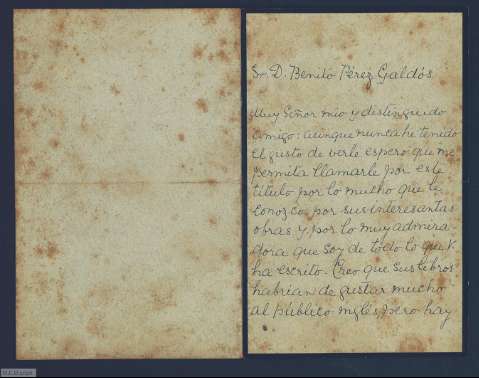 Sr. D. Benito Pérez Galdós.
Muy Señor mio y distinguido
amigo: aunque nunca he tenido
el gusto de verle espero que me
permita llamarle por este
titulo por lo mucho que le
conozco por sus interesantas
obras y por lo muy admira
dora que soy de todo lo que V.
ha escrito. Creo que sus libros
habrian de gustar mucho
al público inglés, pero hay